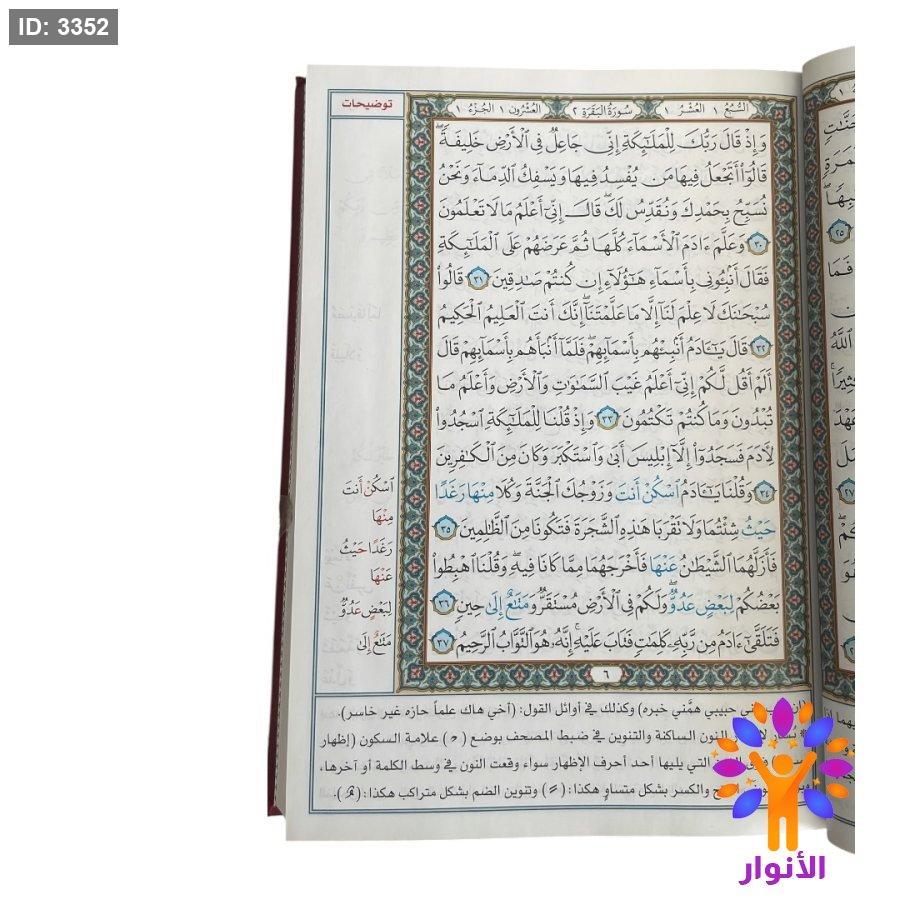 ID: 3352
توضيحات
السُّبُعُ ١ العُشْرُ ١ سُورَةُ البَقَرَةِ ٢ العُشْرُونَ ١ الجُزْءُ ١
وَإِذْ قَالَ رَبُّكَ لِلْمَلَٰٓئِكَةِ إِنِّي جَاعِلٌ فِي الْأَرْضِ خَلِيفَةً ۖ
قَالُوٓا۟ أَتَجْعَلُ فِيهَا مَن يُفْسِدُ فِيهَا وَيَسْفِكُ الدِّمَآءَ وَنَحْنُ
نُسَبِّحُ بِحَمْدِكَ وَنُقَدِّسُ لَكَ ۖ قَالَ إِنِّيٓ أَعْلَمُ مَا لَا تَعْلَمُونَ
٣٠ وَعَلَّمَ ءَادَمَ الْأَسْمَآءَ كُلَّهَا ثُمَّ عَرَضَهُمْ عَلَى الْمَلَٰٓئِكَةِ
فَقَالَ أَنۢبِـُٔونِي بِأَسْمَآءِ هَٰٓؤُلَآءِ إِن كُنتُمْ صَٰدِقِينَ ٣١ قَالُوا۟
سُبْحَٰنَكَ لَا عِلْمَ لَنَآ إِلَّا مَا عَلَّمْتَنَآ ۖ إِنَّكَ أَنتَ الْعَلِيمُ الْحَكِيمُ
٣٢ قَالَ يَٰٓـَٔادَمُ أَنۢبِئْهُم بِأَسْمَآئِهِمْ ۖ فَلَمَّآ أَنۢبَأَهُم بِأَسْمَآئِهِمْ قَالَ
أَلَمْ أَقُل لَّكُمْ إِنِّيٓ أَعْلَمُ غَيْبَ السَّمَٰوَٰتِ وَالْأَرْضِ وَأَعْلَمُ مَا
تُبْدُونَ وَمَا كُنتُمْ تَكْتُمُونَ ٣٣ وَإِذْ قُلْنَا لِلْمَلَٰٓئِكَةِ اسْجُدُوا۟
لِـَٔادَمَ فَسَجَدُوٓا۟ إِلَّآ إِبْلِيسَ أَبَىٰ وَاسْتَكْبَرَ وَكَانَ مِنَ الْكَٰفِرِينَ
٣٤ وَقُلْنَا يَٰٓـَٔادَمُ اسْكُنْ أَنتَ وَزَوْجُكَ الْجَنَّةَ وَكُلَا مِنْهَا رَغَدًا
حَيْثُ شِئْتُمَا وَلَا تَقْرَبَا هَٰذِهِ الشَّجَرَةَ فَتَكُونَا مِنَ الظَّٰلِمِينَ ٣٥
فَأَزَلَّهُمَا الشَّيْطَٰنُ عَنْهَا فَأَخْرَجَهُمَا مِمَّا كَانَا فِيهِ ۖ وَقُلْنَا اهْبِطُوا۟
بَعْضُكُمْ لِبَعْضٍ عَدُوٌّ ۖ وَلَكُمْ فِي الْأَرْضِ مُسْتَقَرٌّ وَمَتَٰعٌ إِلَىٰ حِينٍ ٣٦
فَتَلَقَّىٰٓ ءَادَمُ مِن رَّبِّهِۦ كَلِمَٰتٍ فَتَابَ عَلَيْهِ ۚ إِنَّهُۥ هُوَ التَّوَّابُ الرَّحِيمُ ٣٧
اسْكُنْ أَنتَ
مِنْهَا
رَغَدًا حَيْثُ
عَنْهَا
لِبَعْضٍ عَدُوٌّ
مَتَٰعٌ إِلَىٰ
٦
حبيبي همَّني خبره) وكذلك في أوائل القول: (أخي هاك علماً حازه غير خاسر).
النون الساكنة والتنوين في ضبط المصحف بوضع (ح) علامة السكون (إظهار
التي يليها أحد أحرف الإظهار سواء وقعت النون في وسط الكلمة أو آخرها،
والكسر بشكل متساوٍ هكذا: (ً) وتنوين الضم بشكل متراكب هكذا: (ٌ).
الأنوار